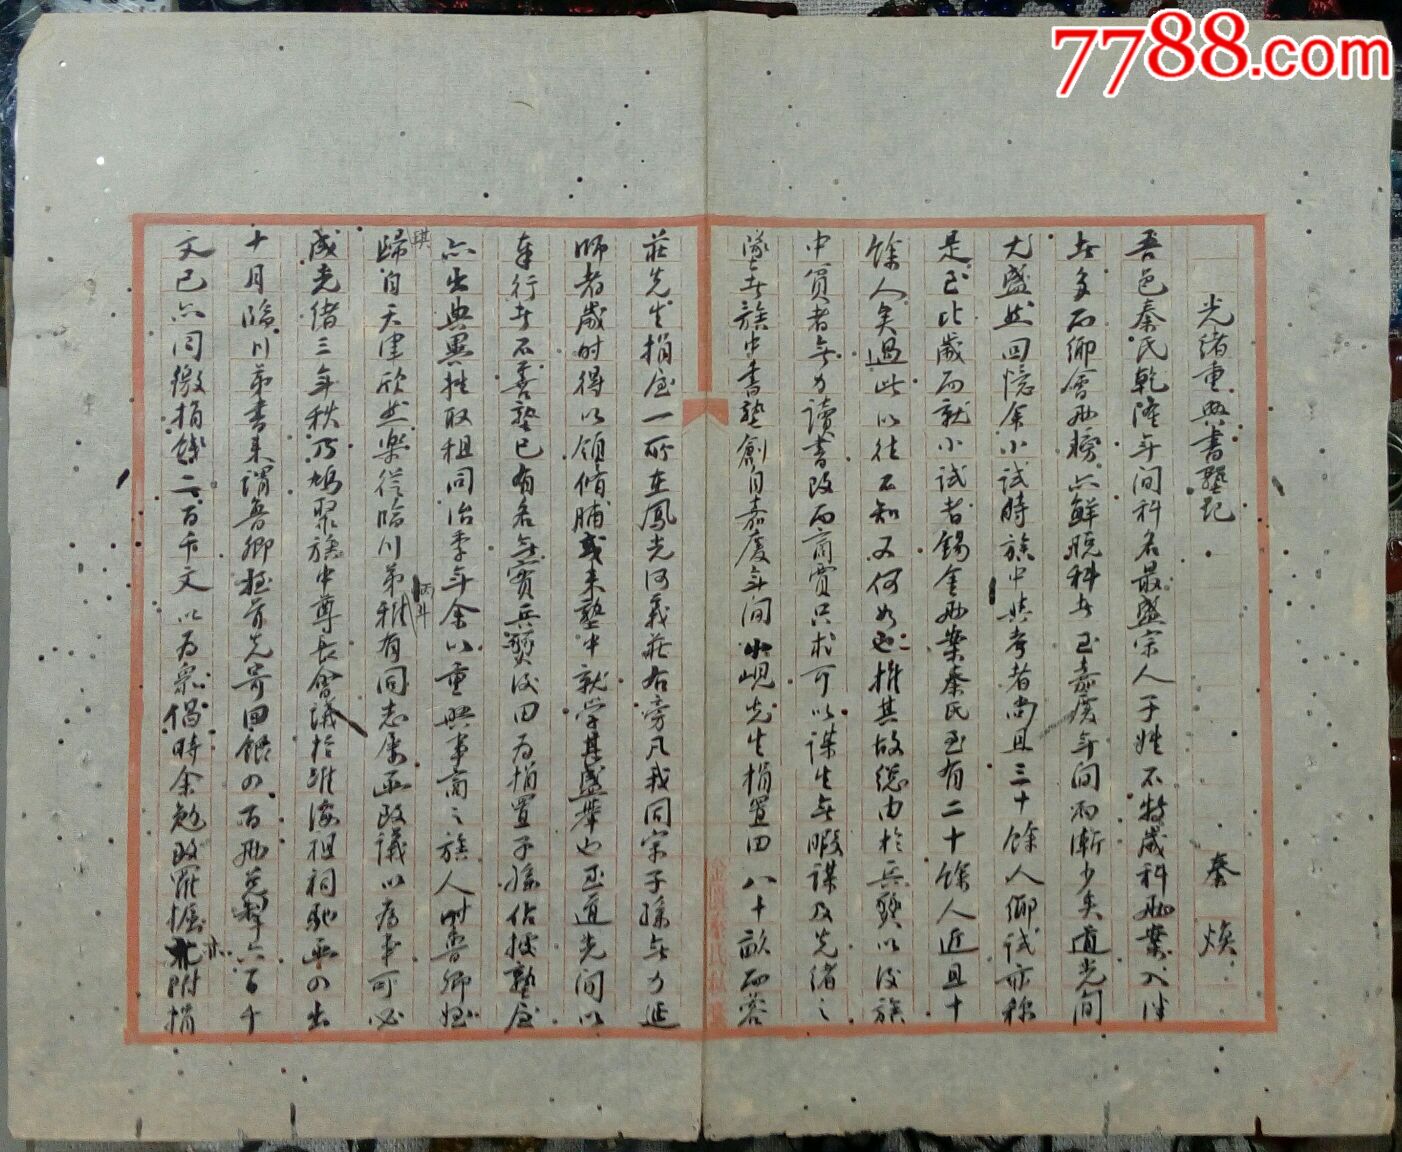 7788.com
光緒重興書塾記
秦 煥
吾邑秦氏乾隆年間科名最盛宗人子姓不特歲科兩案入泮
者多而鄉會兩榜亦鮮脫科者至嘉慶年間而漸少矣道光間
尤盛然回憶余小試時族中與考者尚且三十餘人鄉試亦称
是至比歲而就小試者錫金兩案秦氏玉有二十餘人近且十
餘人矣過此以往不知又何如也推其故總由於兵燹以後族
中貧者無力讀書改而商賈只求可以謀生無暇謀及先緒之
墜者族中書塾創自嘉慶年間小峴先生捐置田八十畝而蓉
莊先生捐屋一所在鳳光河義莊右旁凡我同宗子孫無力延
師者歲時得以領脩脯或来塾中就学甚盛舉也至道光間以
奉行者不善塾已有名無實兵燹後田为捐置子孫佔據塾屋
亦出典異姓取租同治季年余以重興事商之族人時魯卿姪
琪
歸自天津欣然樂從臨川弟雅有同志屢函改議以为事可必
丙井
成光緒三年秋乃鳩聚族中尊長會議於淮海祖祠馳函四出
十月臨川弟書来謂魯卿姪首先寄回銀四百兩 六百千
文已亦同繳捐錢二百千文以为衆倡時余勉改羅掘 附捐